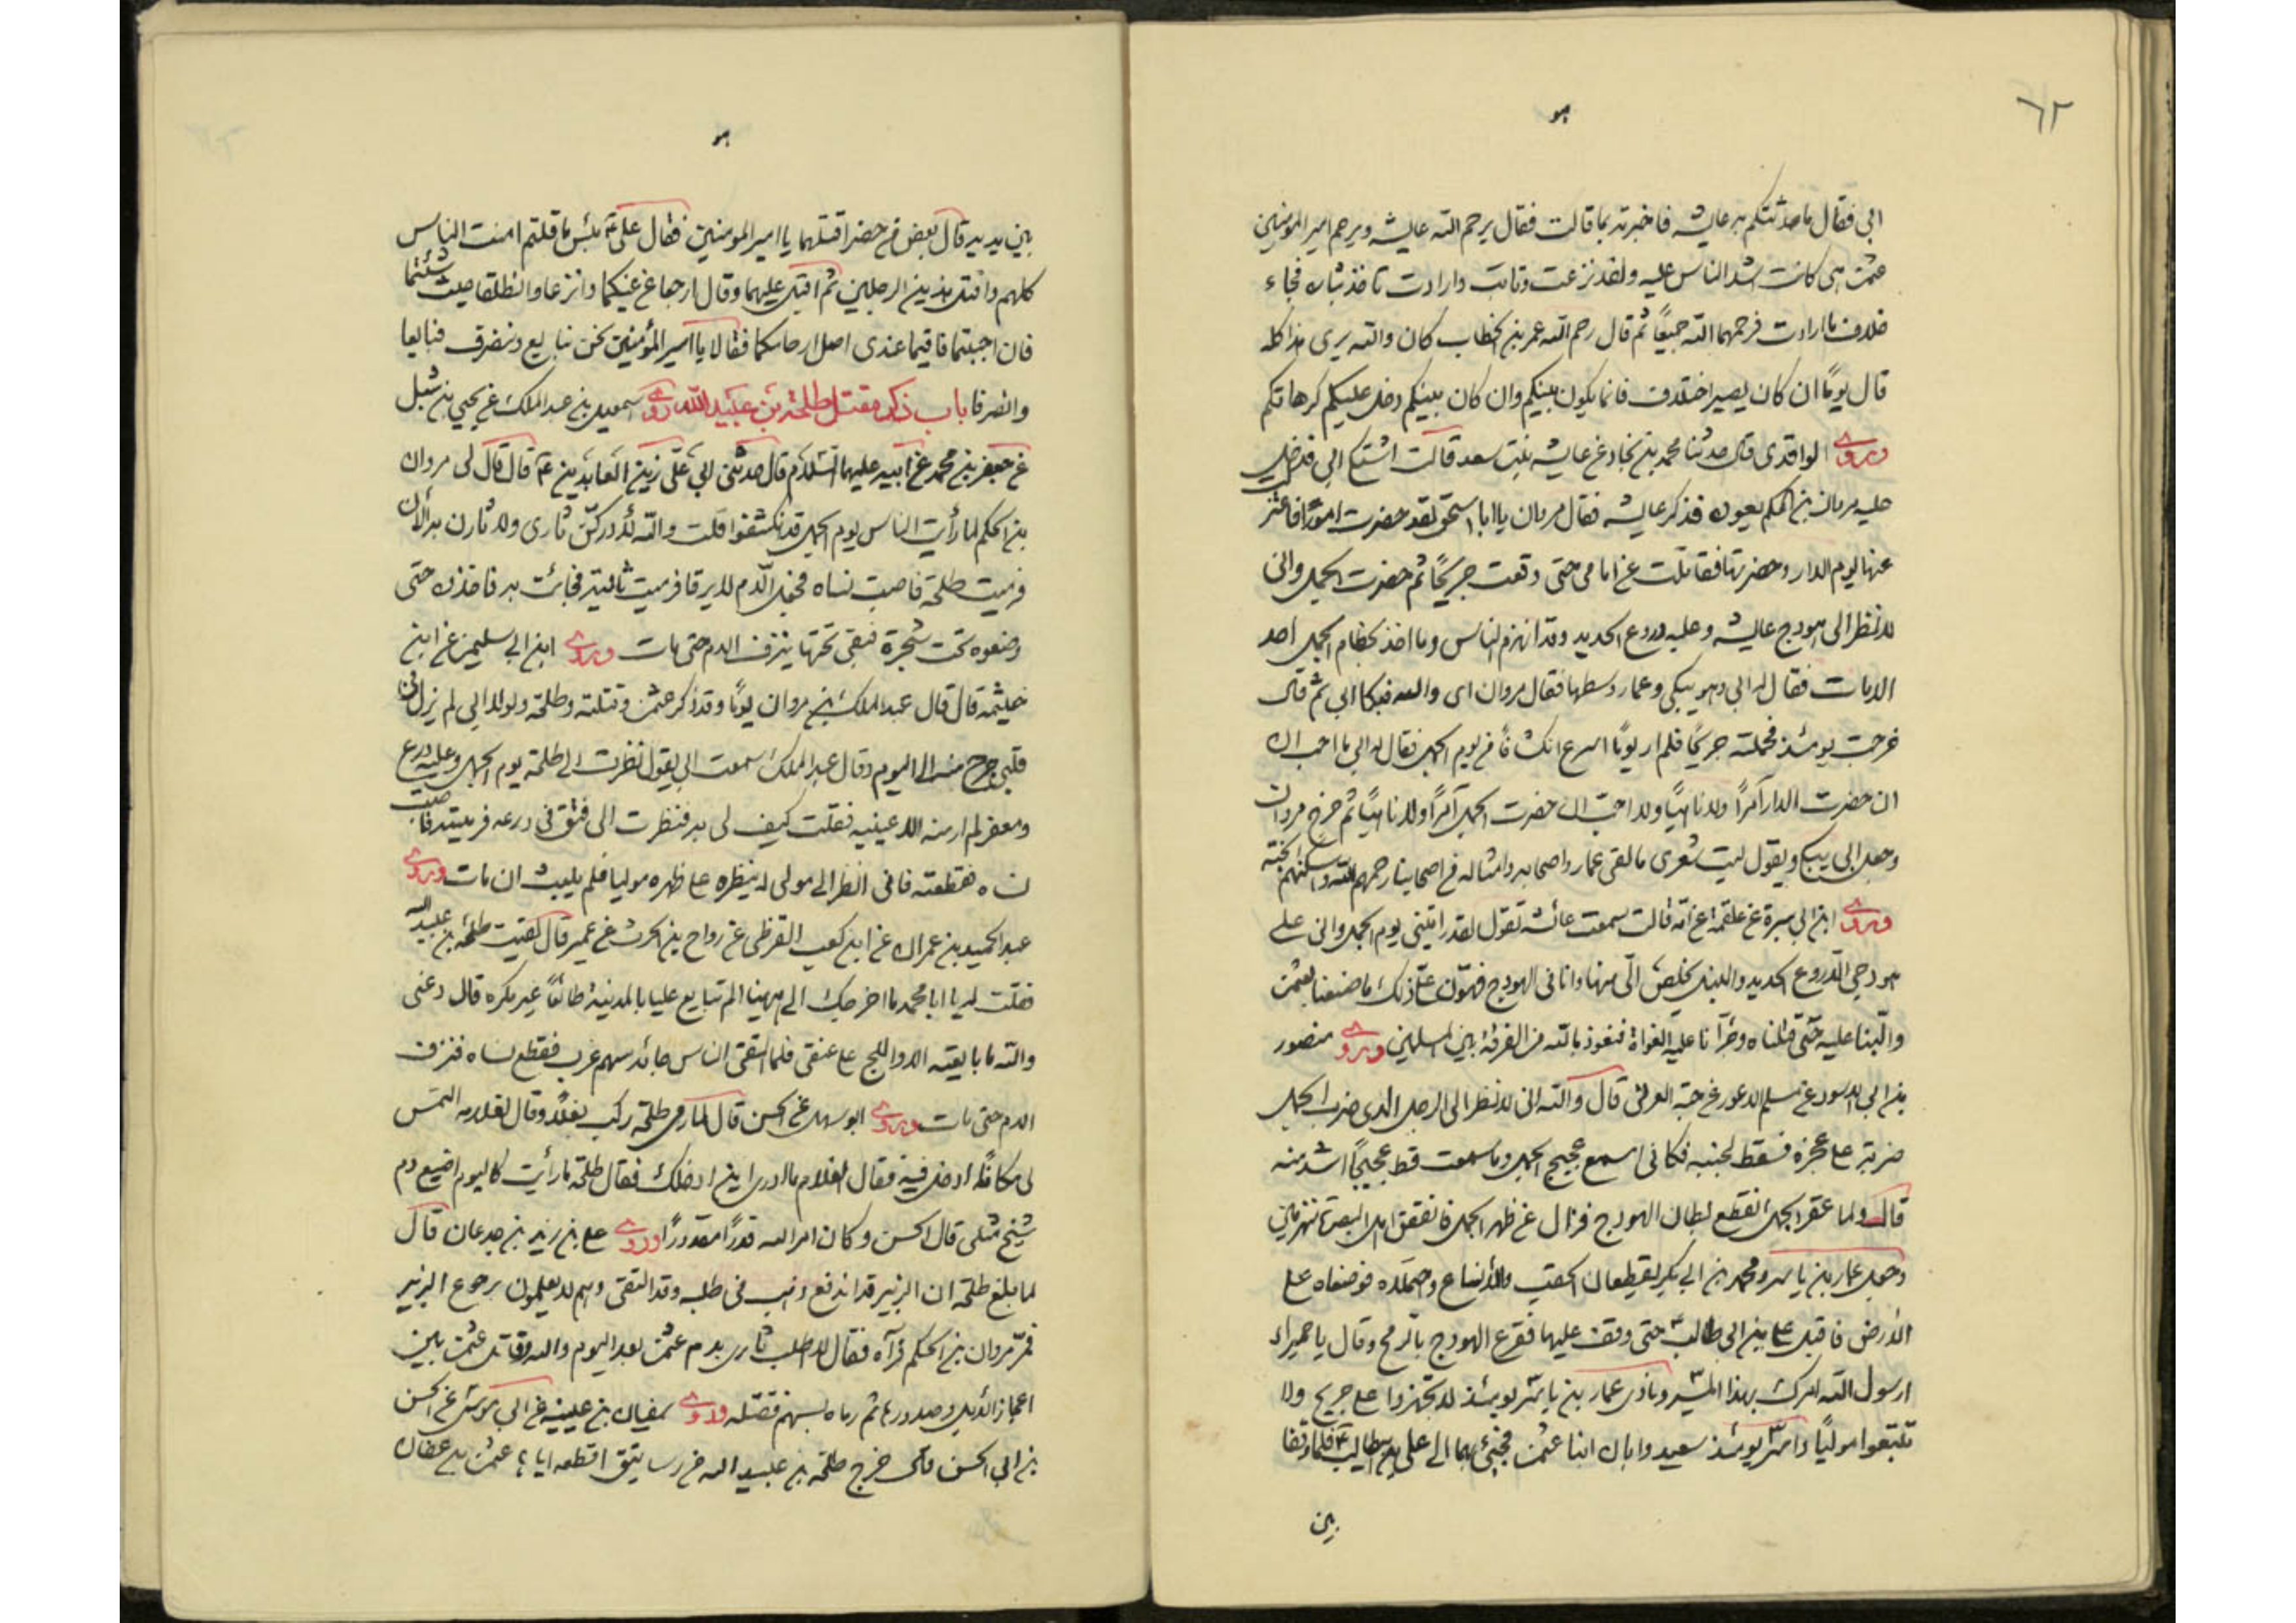 ٦٢
هو
ابى فقال ما حدثتكم به عايشه فاخبرته بما قالت فقال يرحم الله عايشه ويرحم امير المؤمنين
عثمن هى كانت اشد الناس عليه ولقد نزعت وتابت وارادت تاخذ بثاره فجاء
خلاف ما ارادت فرحمهما الله جميعًا ثم قال رحم الله عمر بن الخطاب كان والله يرى هذا كله
قال يومًا ان كان يصير اختلاف فانما يكون بينكم وان كان بينكم دخل عليكم كرهاتكم
وروى الواقدى قال حدثنا محمد بن نجاد عن عايشه بنت سعد قالت اشتكى ابى فدخل
عليه مروان بن الحكم يعوده فذكر عايشه فقال مروان يا ابا اسحق لقد حضرت امورًا
عنها يوم الدار وحضرتها فقاتلت عن امامى حتى وقعت جريحًا ثم حضرت الجمل وانى
لانظر الى هودج عايشه وعليه دروع الحديد وقد انهزم الناس وما اخذ بخطام الجمل احد
الا مات فقال له ابى وهو يبكى وعمار وسطها فقال مروان اى والله فبكا ابى ثم قال
خرجت يومئذ فحملته جريحًا فلم ار يومًا اسرع انكشافًا من يوم الجمل فقال له ابى ما احب انى
ان حضرت الدار آمرًا ولا ناهيًا ولا احب انى حضرت الجمل آمرًا ولا ناهيًا ثم خرج مروان
وجعل ابى يبكى ويقول ليت شعرى ما لقى عمار واصحابه وامثاله من اصحابنا رحمهم الله واسكنهم الجنة
وروى ابن ابى سبرة عن علقمة عن امه قالت سمعت عائشه تقول لقد رايتنى يوم الجمل وانى على
هودجى الدروع الحديد والنبل يخلص الى منها وانا فى الهودج فهون على ذلك ما صنعنا بعثمن
والبنا عليه حتى قتلناه وجرأنا عليه الغواة فنعوذ بالله من الفرقة بين المسلمين وروى منصور
بن ابى الاسود عن مسلم الاعور عن حبة العرنى قال والله انى لانظر الى الرجل الذى ضرب الجمل
ضربة على عجزه فسقط لجنبه فكانى اسمع عجيج الجمل وما سمعت قط عجيجًا اشد منه
قال ولما عقر الجمل انقطع بطان الهودج فزال عن ظهر الجمل فانفض اهل البصرة منهزمين
وجعل عمار بن ياسر ومحمد بن ابى بكر يقطعان الحقب والانساع وحملاه فوضعاه على
الارض فاقبل على بن ابى طالب حتى وقف عليها فقرع الهودج بالرمح وقال يا حميراء
ارسول الله امرك بهذا المسير ونادى عمار بن ياسر يومئذ لا تجهزوا على جريح ولا
تتبعوا موليًا واسر يومئذ سعيد وابان ابنا عثمن فجئ بهما الى على بن ابيطالب فلما وقفا
بين
هو
بين يديه قال بعض من حضر اقتلهما يا امير المومنين فقال على ع بئس ما قلتم امنت الناس
كلهم واقتل هذين الرجلين ثم اقبل عليهما وقال ارجعا عن غيكما وانزعا وانطلقا حيث شئتما
فان اجبتما فاقيما عندى اصل ارحامكما فقالا يا امير المؤمنين نحن نبايع وننصرف فبايعا
وانصرفا باب ذكر مقتل طلحة بن عبيد الله روى اسمعيل بن عبد الملك عن يحيى بن شبل
عن جعفر بن محمد عن ابيه عليهما السلام قال حدثنى ابى على زين العابدين ع قال قال لى مروان
بن الحكم لما رأيت الناس يوم الجمل قد انكشفوا قلت والله لادركن ثارى ولا ثارن به الان
فرميت طلحة فاصبت نساه فجعل الدم لا يرقا فرميت ثالثة فجائت به فاخذه حتى
وضعوه تحت شجرة فبقى تحتها ينزف الدم حتى مات وروى ابن ابى سليمن عن ابن
خيثمه قال قال عبد الملك بن مروان يومًا وقد ذكر عثمن وقتلته وطلحة ولولا ابى لم يزل فى
قلبى جرح منه الى اليوم وقال عبد الملك سمعت ابى يقول نظرت الى طلحة يوم الجمل وعليه درع
ومغفر لم ار منه الا عينيه فقلت كيف لى به فنظرت الى فتق فى درعه فرميته فاصبت
نساه فقطعته فانى انظر الى مولى له ينظره على ظهره موليا فلم يلبث ان مات وروى
عبد الحميد بن عمران عن ابن كعب القرظى عن رواح بن الحرث عن عمير قال لقيت طلحة بن عبيد الله
فقلت له يا ابا محمد ما اخرجك الى ههنا الم تبايع عليا بالمدينة طائعًا غير مكره قال دعنى
والله ما بايعته الا واللج على عنقى فلما التقى الناس جائه سهم غرب فقطع نساه فنزف
الدم حتى مات وروى ابو سهل عن الحسن قال لما رمى طلحة ركب بغلًا وقال لغلامه التمس
لى مكانًا ادخل فيه فقال الغلام ما ادرى اين ادخلك فقال طلحة ما رأيت كاليوم اضيع دم
شيخ مثلى قال الحسن وكان امر الله قدرًا مقدورًا وروى على بن زيد بن جدعان قال
لما بلغ طلحة ان الزبير قد اندفع ذهب فى طلبه وقد التقى وهم لا يعلمون برجوع الزبير
فمر مروان بن الحكم فرآه فقال لا اطلب ثارى بدم عثمن بعد اليوم والله وقاتل عثمن بين
اعجاز الابل وصدورها ثم رماه بسهم فقتله وروى سفيان بن عيينة عن ابى موسى عن الحسن
بن ابى الحسن قال خرج طلحة بن عبيد الله من رساتيق اقطعه اياها عثمن بن عفان